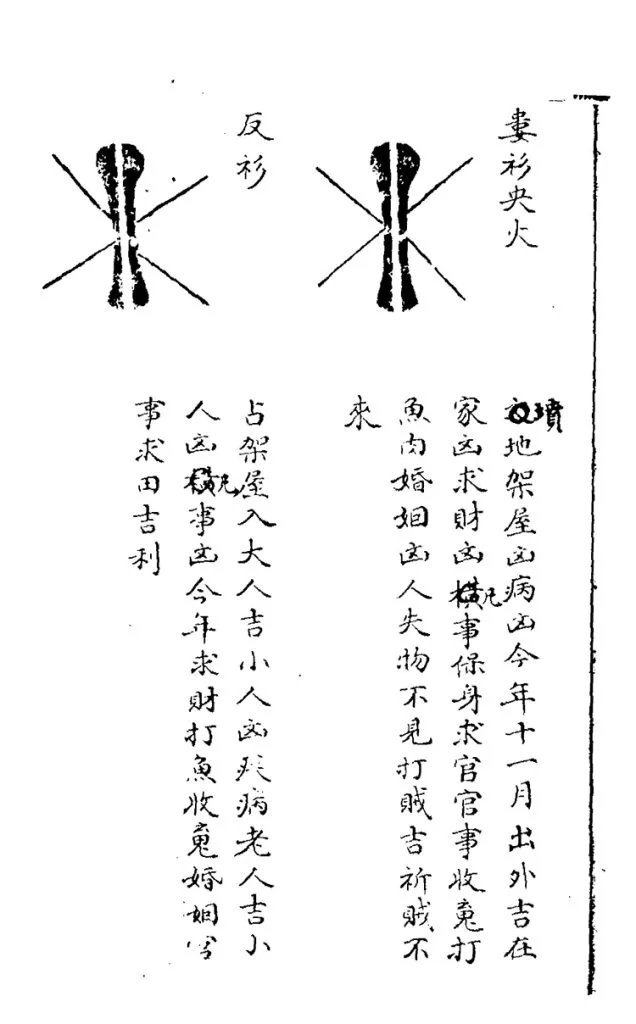 婁衫央火
地架屋凶病凶今年十一月出外吉在
家凶求財凶橫事保身求官官事收鬼打
魚肉婚姻凶人失物不見打賊吉祈賊不
來
反衫
占架屋入大人吉小人凶疾病老人吉小
人凶橫事凶今年求財打魚收鬼婚姻
事求田吉利